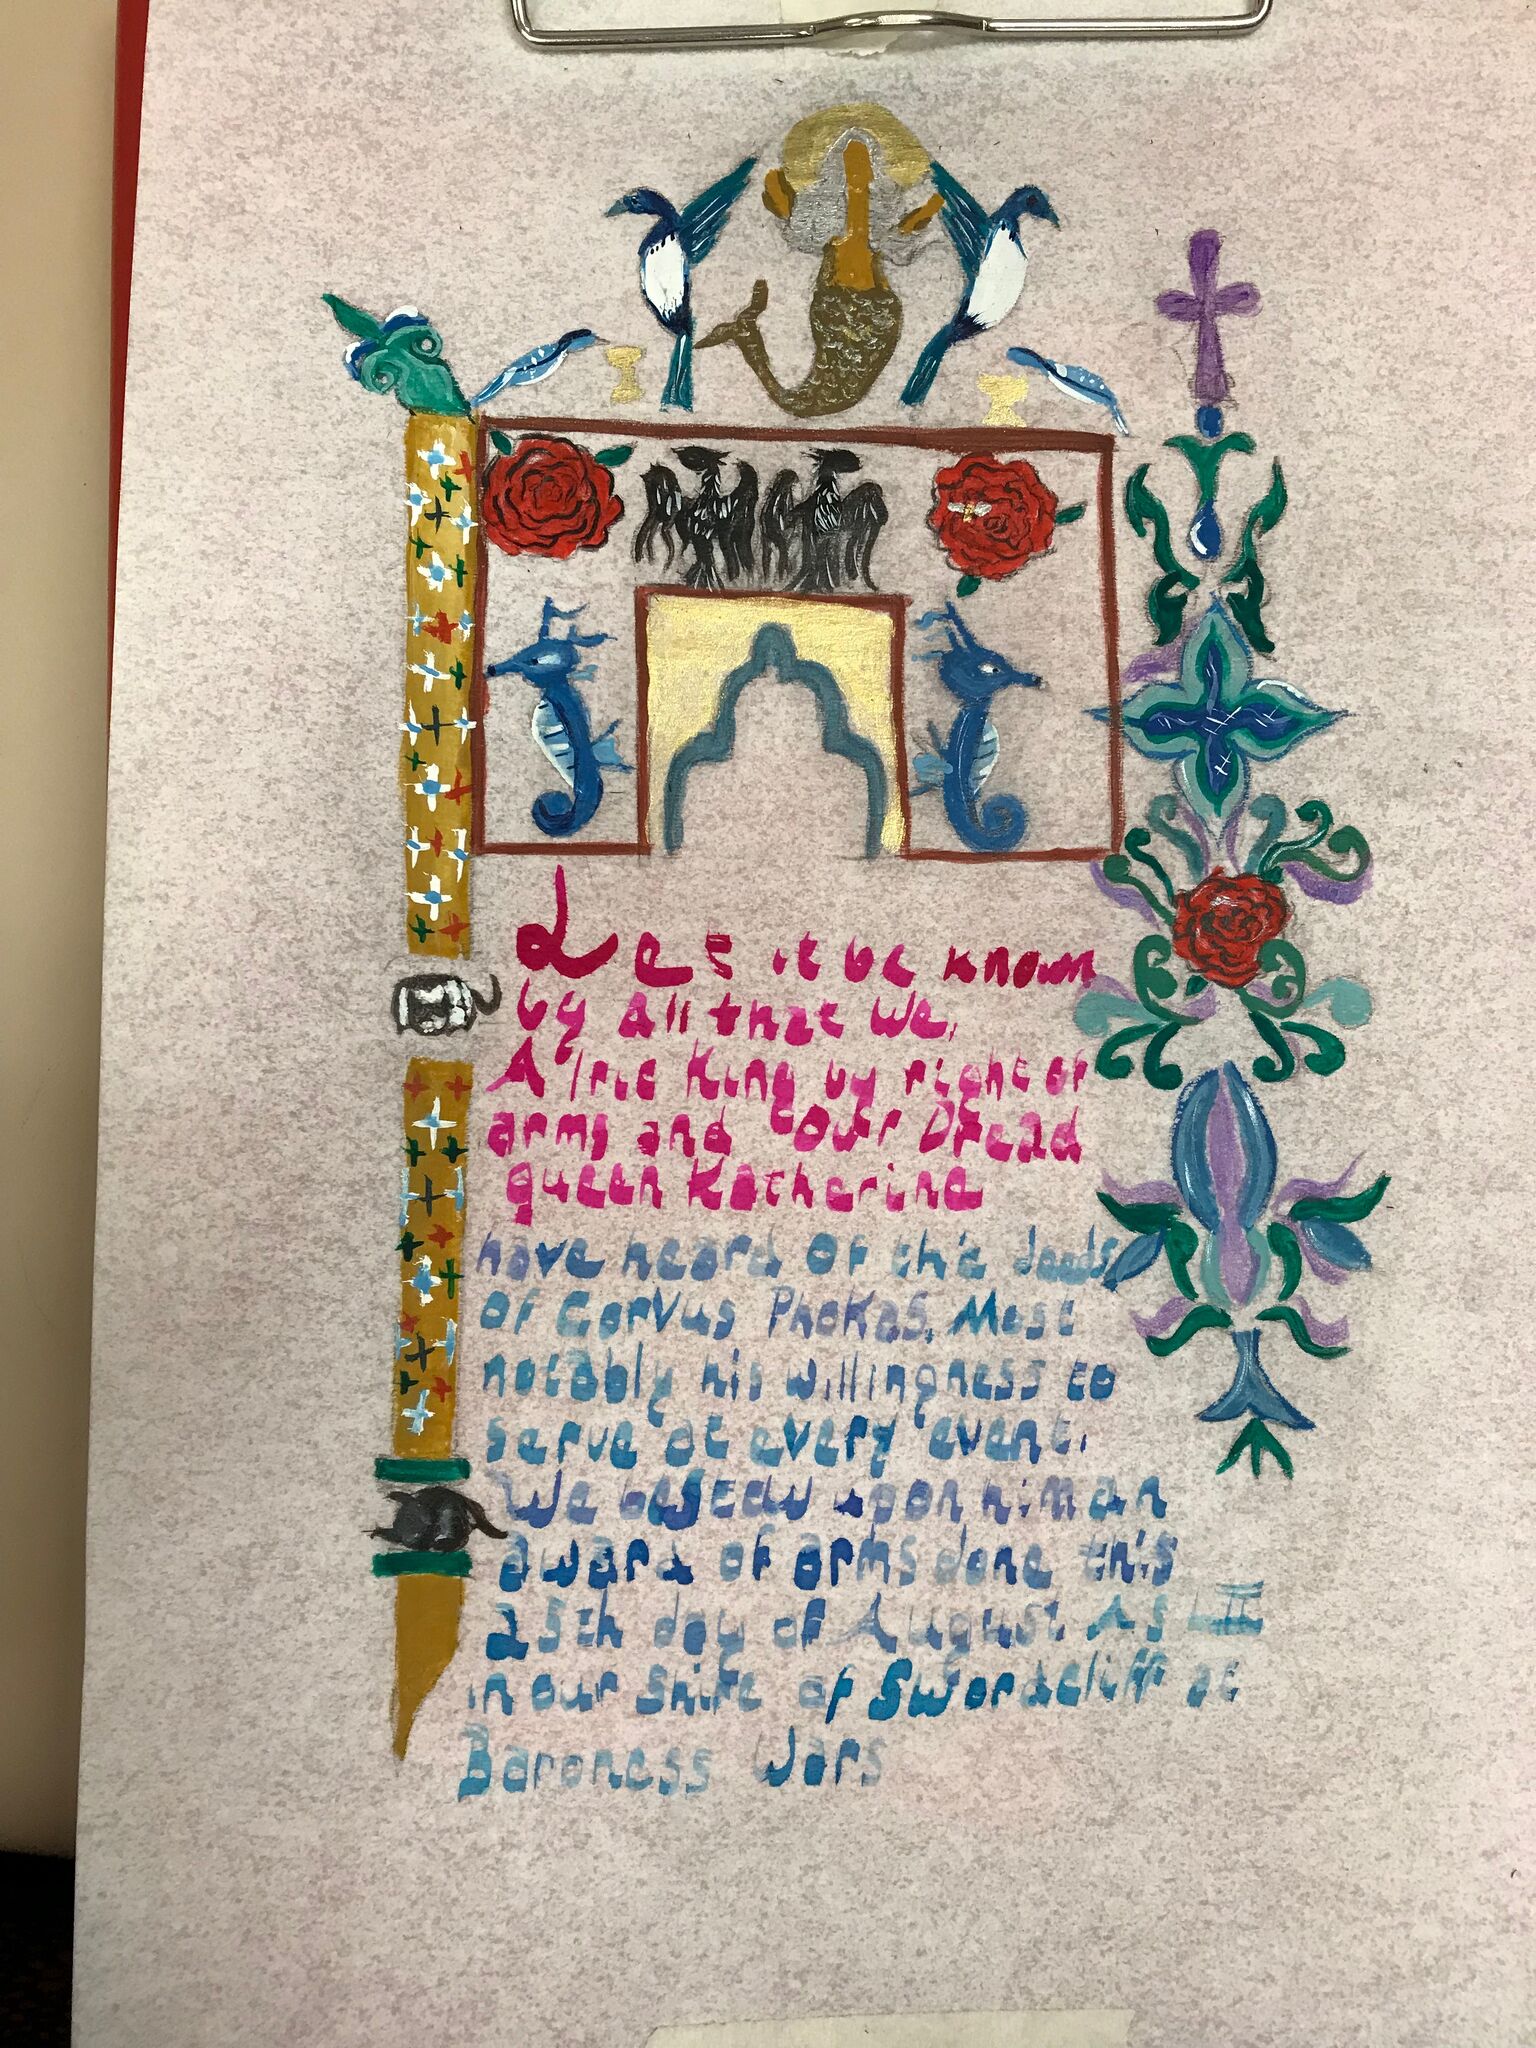 Let it be known
by All that We,
Alric King by right of
arms and Our Dread
queen Katherine
have heard of the deeds
of Corvus Phokas. Most
notably his willingness to
serve at every event.
We bestow upon him an
award of arms done this
25th day of August As LIII
in our shire of Swordcliff at
Baroness Wars